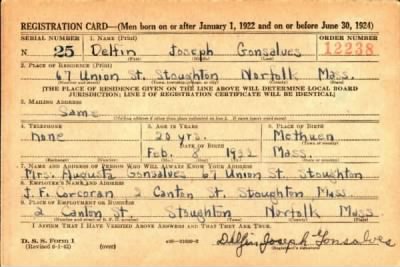 REGISTRATION CARD—(Men born on or after January 1, 1922 and on or before June 30, 1924)
SERIAL NUMBER 1. NAME (Print) ORDER NUMBER
N 25 Delfin Joseph Gonsalves 12238
(First) (Middle) (Last)
2. PLACE OF RESIDENCE (Print)
67 Union St. Stoughton Norfolk Mass.
(THE PLACE OF RESIDENCE GIVEN ON THE LINE ABOVE WILL DETERMINE LOCAL BOARD
JURISDICTION; LINE 2 OF REGISTRATION CERTIFICATE WILL BE IDENTICAL)
3. MAILING ADDRESS
Same
4. TELEPHONE 5. AGE IN YEARS 6. PLACE OF BIRTH
none 20 yrs. Methuen
DATE OF BIRTH
Feb. 8 1922 Mass.
7. NAME AND ADDRESS OF PERSON WHO WILL ALWAYS KNOW YOUR ADDRESS
Mrs. Augusta Gonsalves 67 Union St. Stoughton
8. EMPLOYER'S NAME AND ADDRESS
J. F. Corcoran 2 Canton St. Stoughton Mass
9. PLACE OF EMPLOYMENT OR BUSINESS
2 Canton St. Stoughton Norfolk Mass
I AFFIRM THAT I HAVE VERIFIED ABOVE ANSWERS AND THAT THEY ARE TRUE.
D. S. S. Form 1
(over)
Delfin Joseph Gonsalves